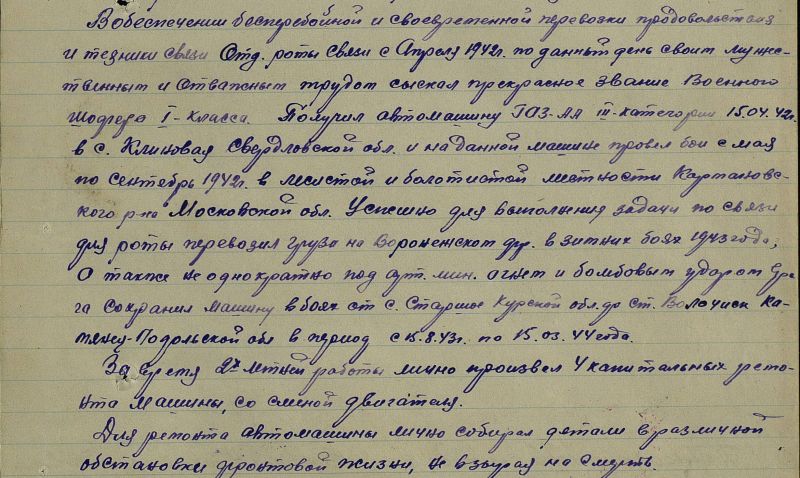 В обеспечении бесперебойной и своевременной перевозки продовольствия
и техники связи Отд. роты связи с Апреля 1942г. по данный день своим мужес-
твенным и отважным трудом сыскал прекрасное звание Военного
Шофера I-класса. Получил автомашину ГАЗ-АА III-категории 15.04.42г.
в с. Клиновая Свердловской обл. и на данной машине провел бои с мая
по сентябрь 1942г. в лесистой и болотистой местности Кармановс-
кого р-на Московской обл. Успешно для выполнения задачи по связи
для роты перевозил груза на Воронежском фр. в зимних боях 1943 года;
А также не однократно под арт. мин. огнем и бомбовым ударом вра-
га сохранил машину в боях от с. Старшое Курской обл. до ст. Волочиск Ка-
менец-Подольской обл в период с 15.8.43г. по 15.03.44 года.
За время 2х летней работы лично произвел 4 капитальных ремо-
нта машины, со сменой двигателя.
Для ремонта автомашины лично собирал детали в различной
обстановке фронтовой жизни, не взирая на смерть.